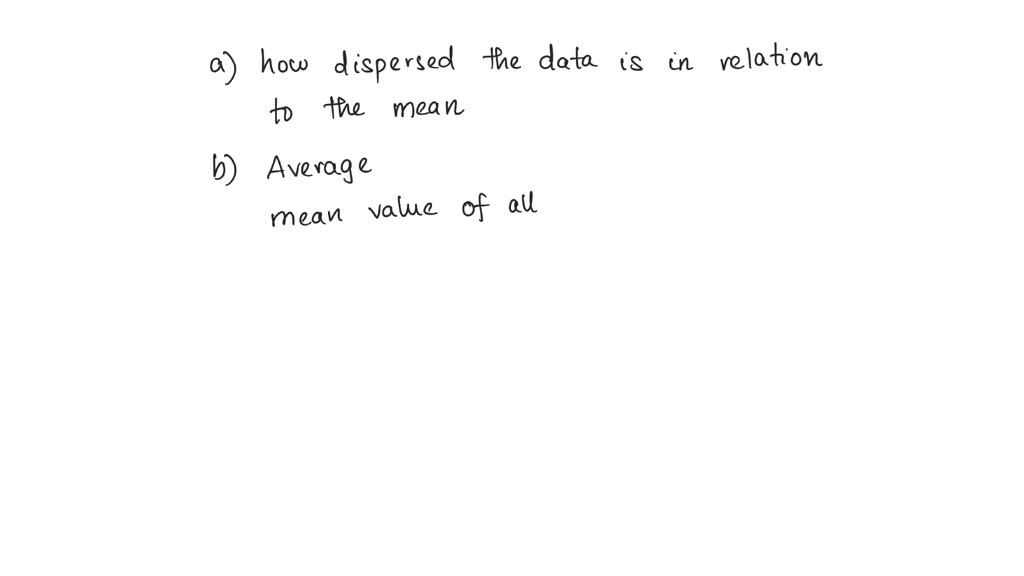 a) how dispersed the data is in relation
to the mean
b) Average
mean value of all